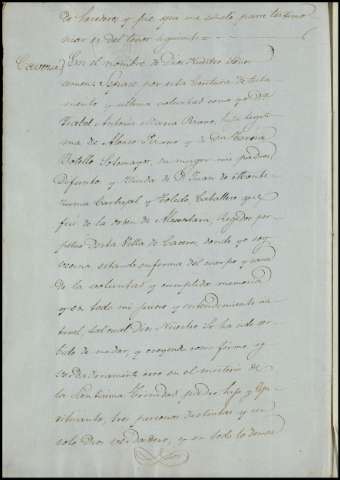 de herederos y pie que me siento, para testimo
niar es del tenor siguiente
En el nombre de Dios Nuestro Señor
Amen: Sepase por esta escritura de testa
mento y ultima voluntad como yo Dª
Isabel Antonia Maria Bravo, hija legiti
ma de Alonso Bravo y de Dª Teresa
Botello Sotomayor su muger mis padres
difuntos y viuda de D. Juan de Mocte
zuma Carbajal y Toledo Caballero que
fué de la orden de Alcantara, Regidor per
petuo desta Villa de Caceres donde yo soy
vecina estando enferma del cuerpo y sana
de la voluntad y en cumplida memoria
y en todo mi juicio y entendimiento na
tural tal cual Dios Nuestro Sr ha sido ser
bido de me dar, y creyendo como firme y
verdaderamente creo en el misterio de
la Santisima Trinidad padre, hijo y Espi
ritu santo, tres personas distintas y un
solo Dios verdadero, y en todo lo demas